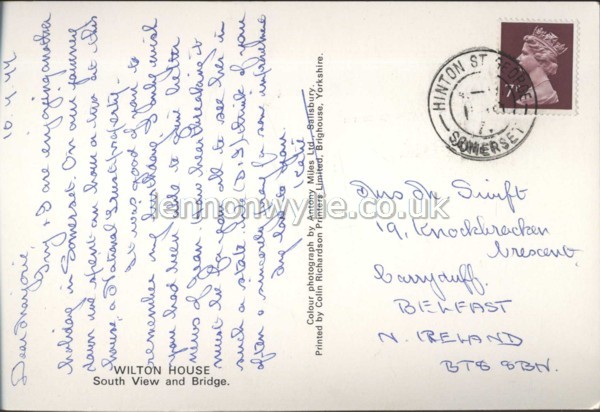 10.9.77
Dear Marjorie,
Guy & I are enjoying another
holiday in Somerset. On our journey
down we spent an hour or two at this
house, a National Trust property.
It was good of you to
remember my birthday. I
you had been able to give better
news of Jean. How heartbreaking it
must be for you all to see her in
such a state. We (D.&G.) think of you
often & sincerely pray for some improvement
love to you
Katie
WILTON HOUSE
South View and Bridge.
Colour photograph by Antony Miles Ltd., Salisbury.
Printed by Colin Richardson Printers Limited, Brighouse, Yorkshire.
HINTON ST. GEORGE
SOMERSET
7P
Mrs M. Swift
19, Knockbracken
Crescent,
Carryduff.
BELFAST
N. IRELAND
BT8 8BN.
lennonwylie.co.uk